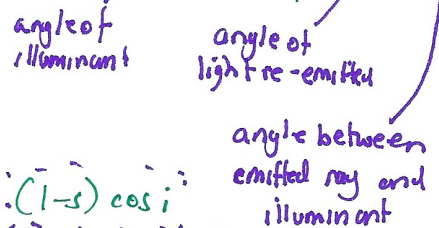 angle of
illuminant
angle of
light re-emitted
angle between
emitted ray and
illuminant
(1-s) cos i